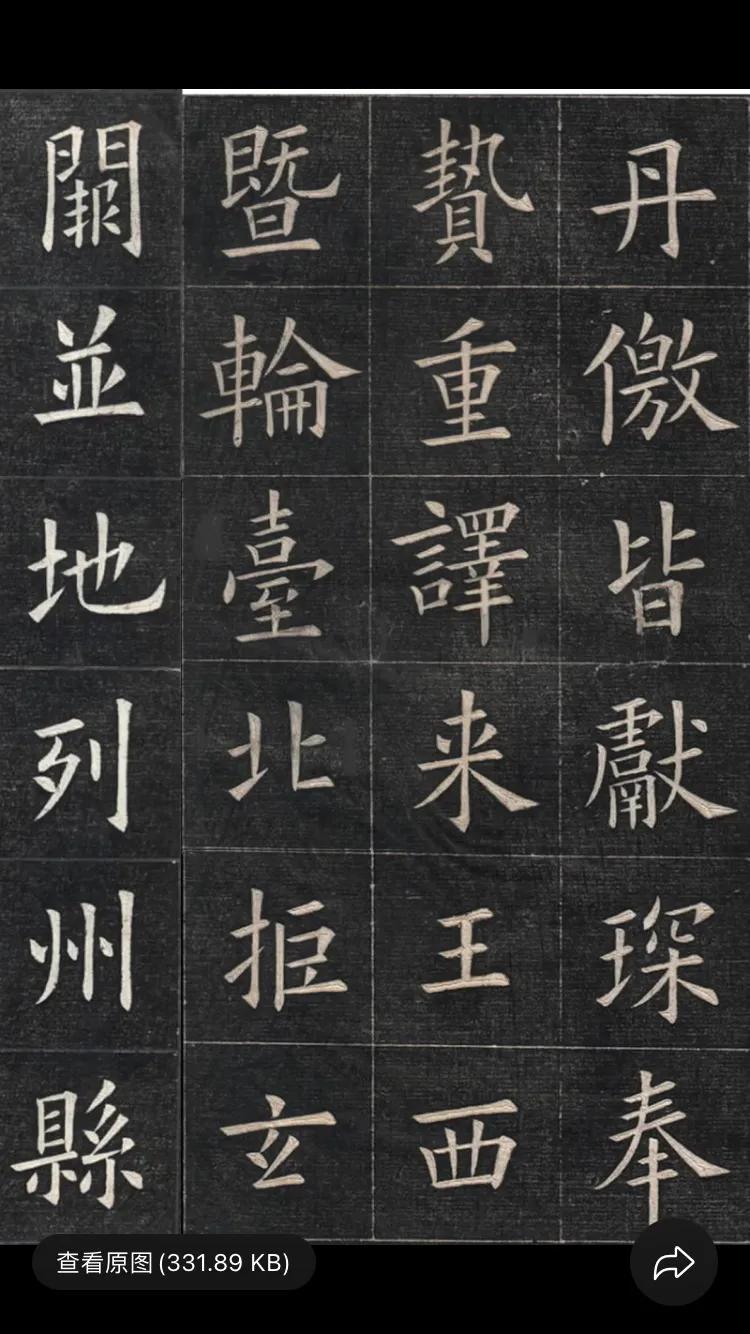 丹徼皆獻琛奉
贄重譯来王西
暨輪臺北拒玄
闕並地列州縣
查看原图(331.89 KB)